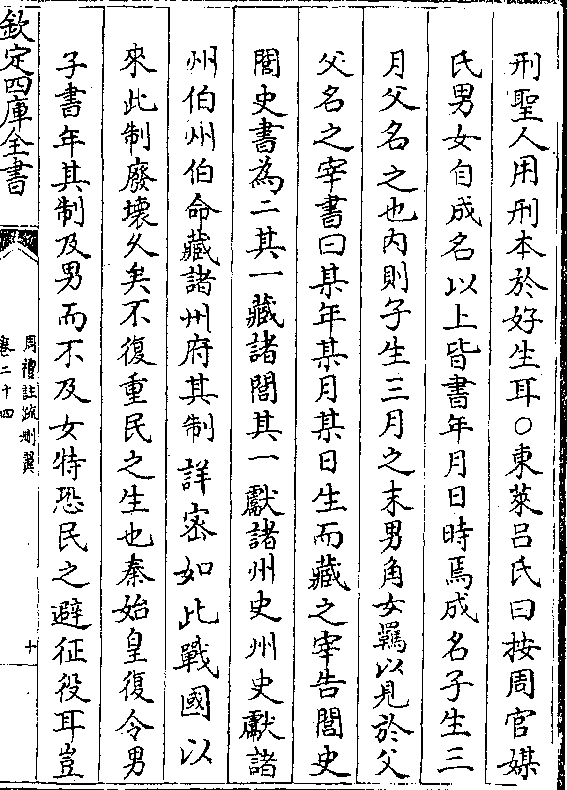 刑聖人用刑本於好生耳○東萊吕氏曰按周官媒
氏男女自成名以上皆書年月日時焉成名子生三
月父名之也内則子生三月之末男角女羈以見於父
父名之宰書曰某年某月某日生而藏之宰告閭史
閭史書為二其一藏諸閭其一獻諸州史州史獻諸
州伯州伯命藏諸州府其制詳密如此戰國以
來此制廢壞久矣不復重民之生也秦始皇復令男
子書年其制及男而不及女特恐民之避征役耳豈
欽定四庫全書
周禮註疏刪翼
卷二十四
十